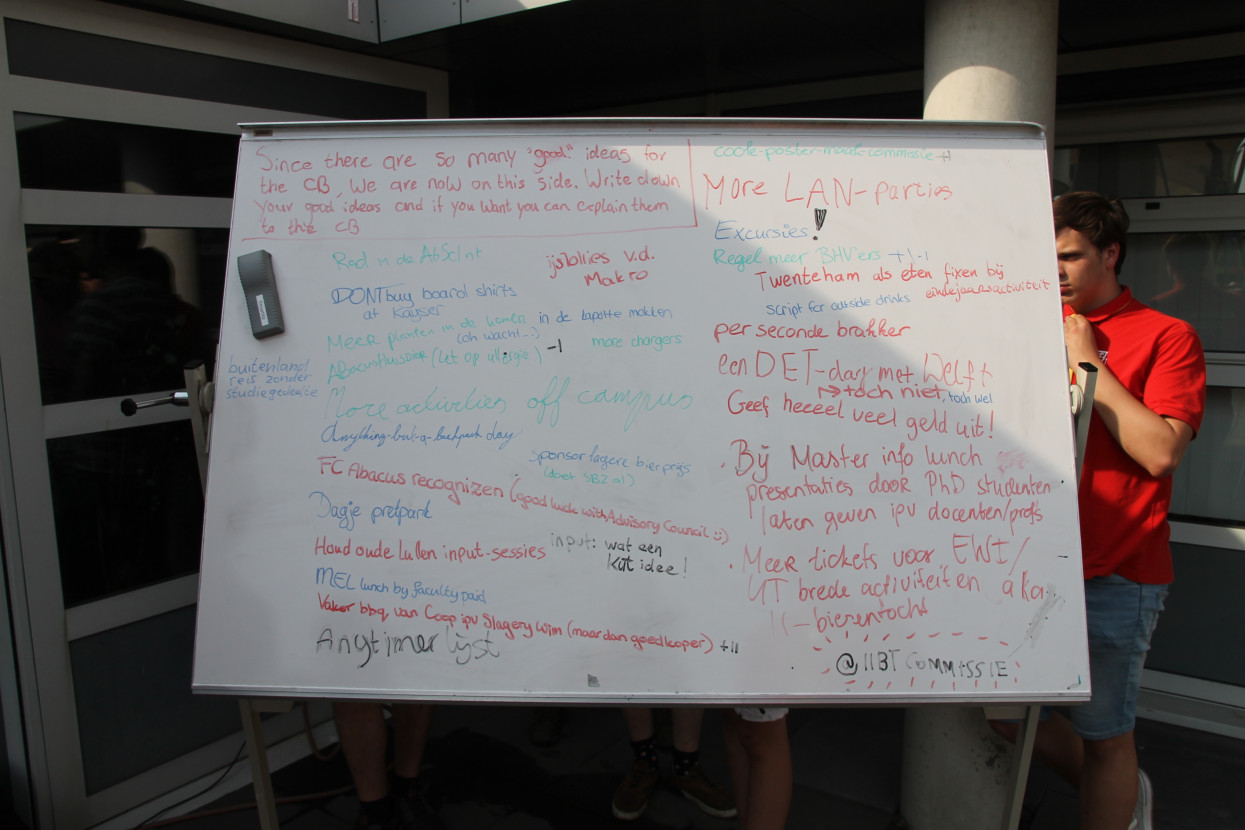 Since there are so many "good" ideas for
the CB, We are now on this side. Write down
your good ideas and if you want you can explain them
to the CB
Rad in de AbScInt
ijslollies v.d.
Makro
DONT buy board shirts
at Kayser
Meer planten in de
(oh wacht...)
in de Lapotte mokken
Abacus Huisdier (let op allergie) -1
more chargers
buitenland
reis zonder
studie
More activities off campus
Anything-but-a-backpack day
Sponsor lagere bierprijs
(doet SBZ al)
FC Abacus recognizen (good luck with Advisory Council :))
Dagje pretpark
Houd oude lullen input-sessies
input: wat een
kut idee!
MEL lunch by faculty paid
Vaker bbq van Coop ipv Slagerij Wim (maar dan goedkoper) +11
Angtimer lijst
coole-poster-maak-commissie +1
More LAN-parties
Excursies!
Regel meer BHV'ers +1 -1
Twenteham als eten fixen bij
eindejaarsactiviteit
script for outside drinks
per seconde brakker
een DET-dag met Welft
→ toch niet, toch wel
Geef heeeel veel geld uit!
. Bij Master info lunch
presentaties door PhD studenten
laten geven ipv docenten/profs
. Meer tickets voor EWI/
UT brede activiteiten a.k.a.
-bierentocht
@IIBT COMMISSIE